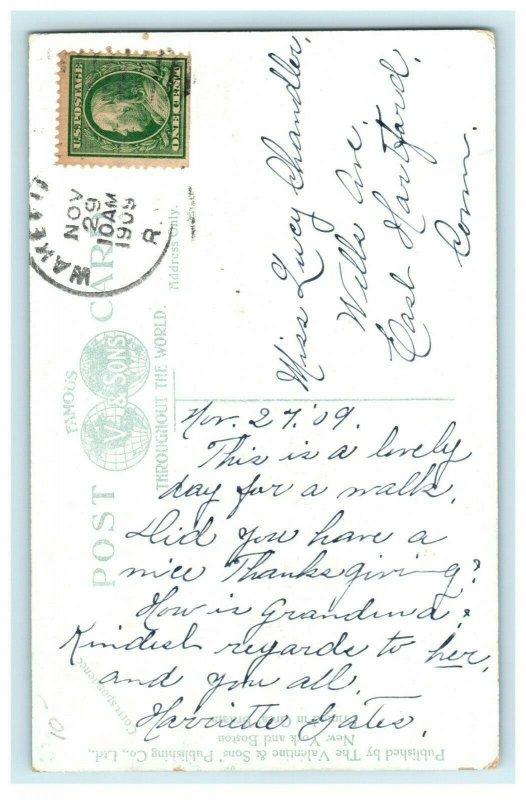 U.S. POSTAGE
ONE CENT
NOV
29
10AM
1909
R.
FAMOUS
POST CARD
V. & SONS
THROUGHOUT THE WORLD.
Address Only.
Correspondence
Miss Lucy Chandler,
Wells Ave.
East Hartford,
Conn.
Nov. 27. '09.
This is a lovely
day for a walk.
Did you have a
nice Thanksgiving?
How is Grandma?
Kindest regards to her,
and you all.
Harriette Gates.
Published by The Valentine & Sons' Publishing Co., Ltd.,
New York and Boston
Printed in Great Britain
10-